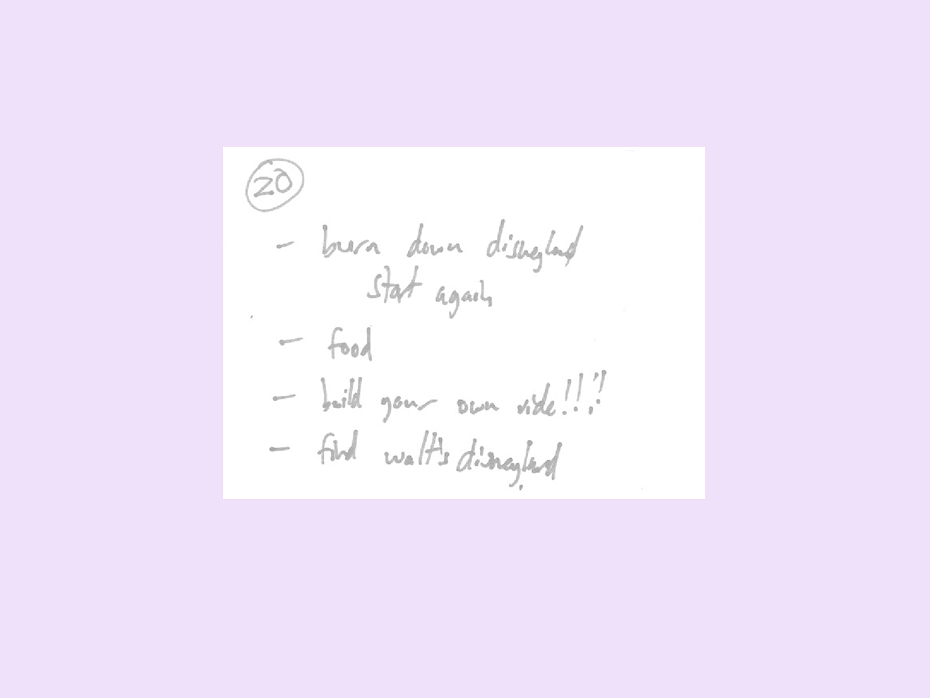 20
- burn down disneyland
start again
- food
- build your own ride!!!!
- find walt's disneyland